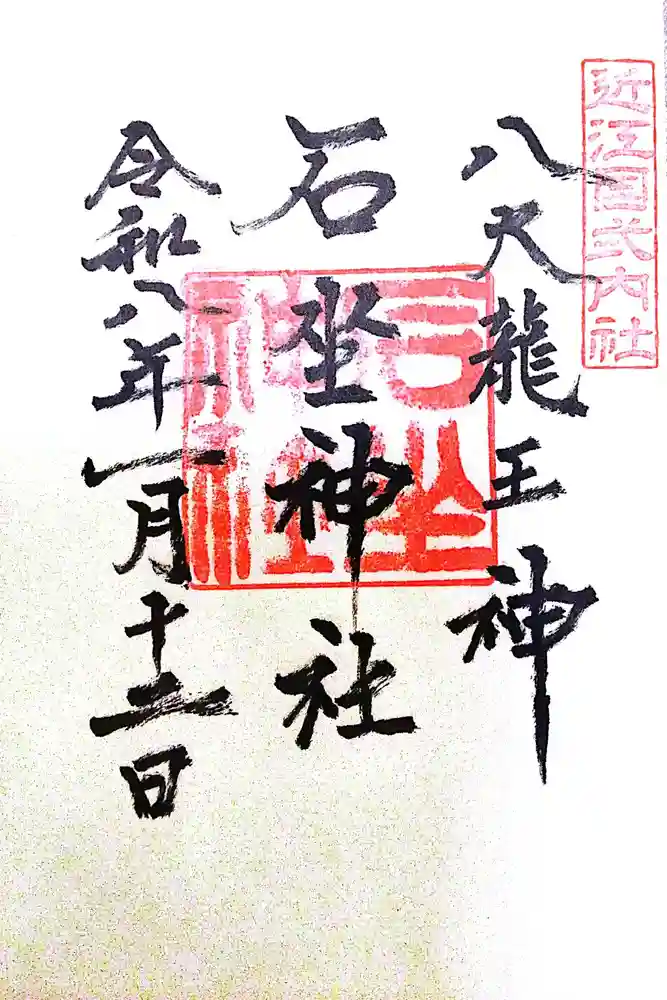 近江国式内社
八大龍王神
石坐神社
石坐神社
令和八年一月十二日